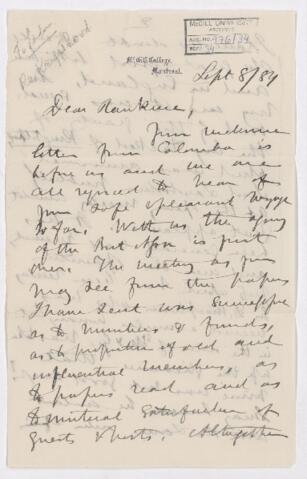 McGILL UNIVERSITY
ARCHIVES
ACC. NO. 926/34
REF. 34
McGill College,
Montreal.
Sept 8/84
Dear
Your welcome
letter from Colombo is
before us and we are
all rejoiced to hear of
your safe & pleasant voyage
so far. With us the agony
of the Brit Assn is just
over. The meeting as you
may see from the papers
I have sent was successful
as to numbers & funds,
as to proportion of old and
influential members, as
to papers read and as
to mutual satisfaction of
guests & hosts. Altogether